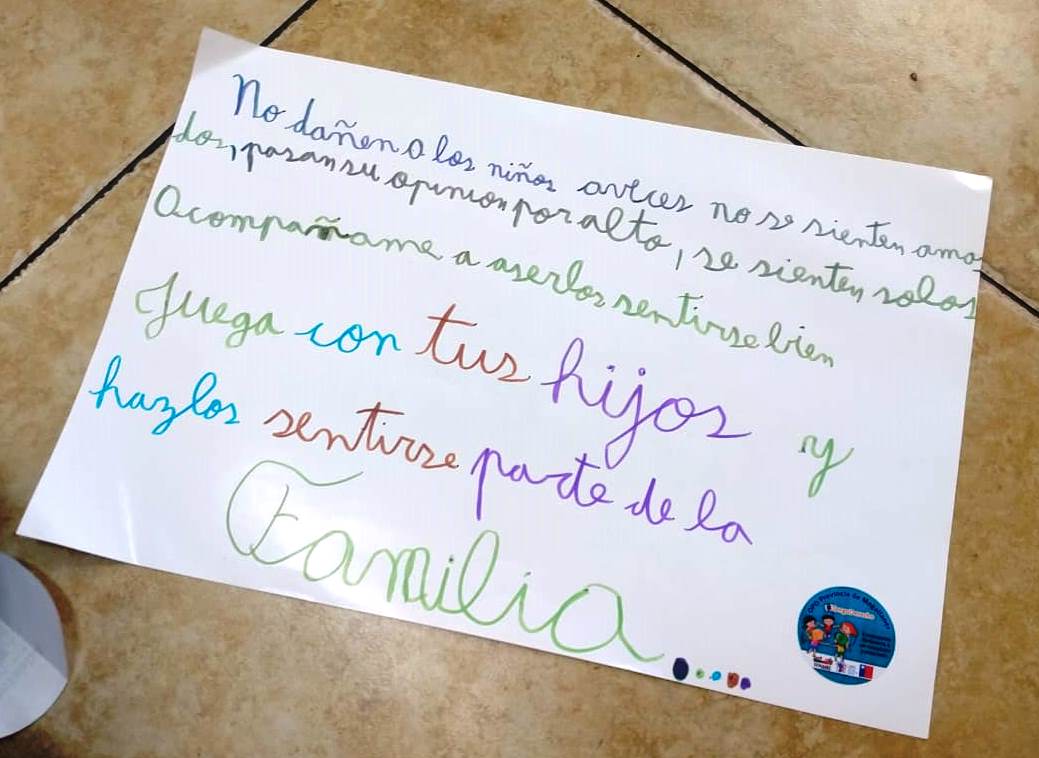 No dañen a los niños aveces no se sienten ama-
dos, pasan su opinion por alto, se sienten solos
Acompañame a aserlos sentirse bien
Juega con tus hijos y
hazlos sentirse parte de la
Familia
OPD Provincia de Magallanes